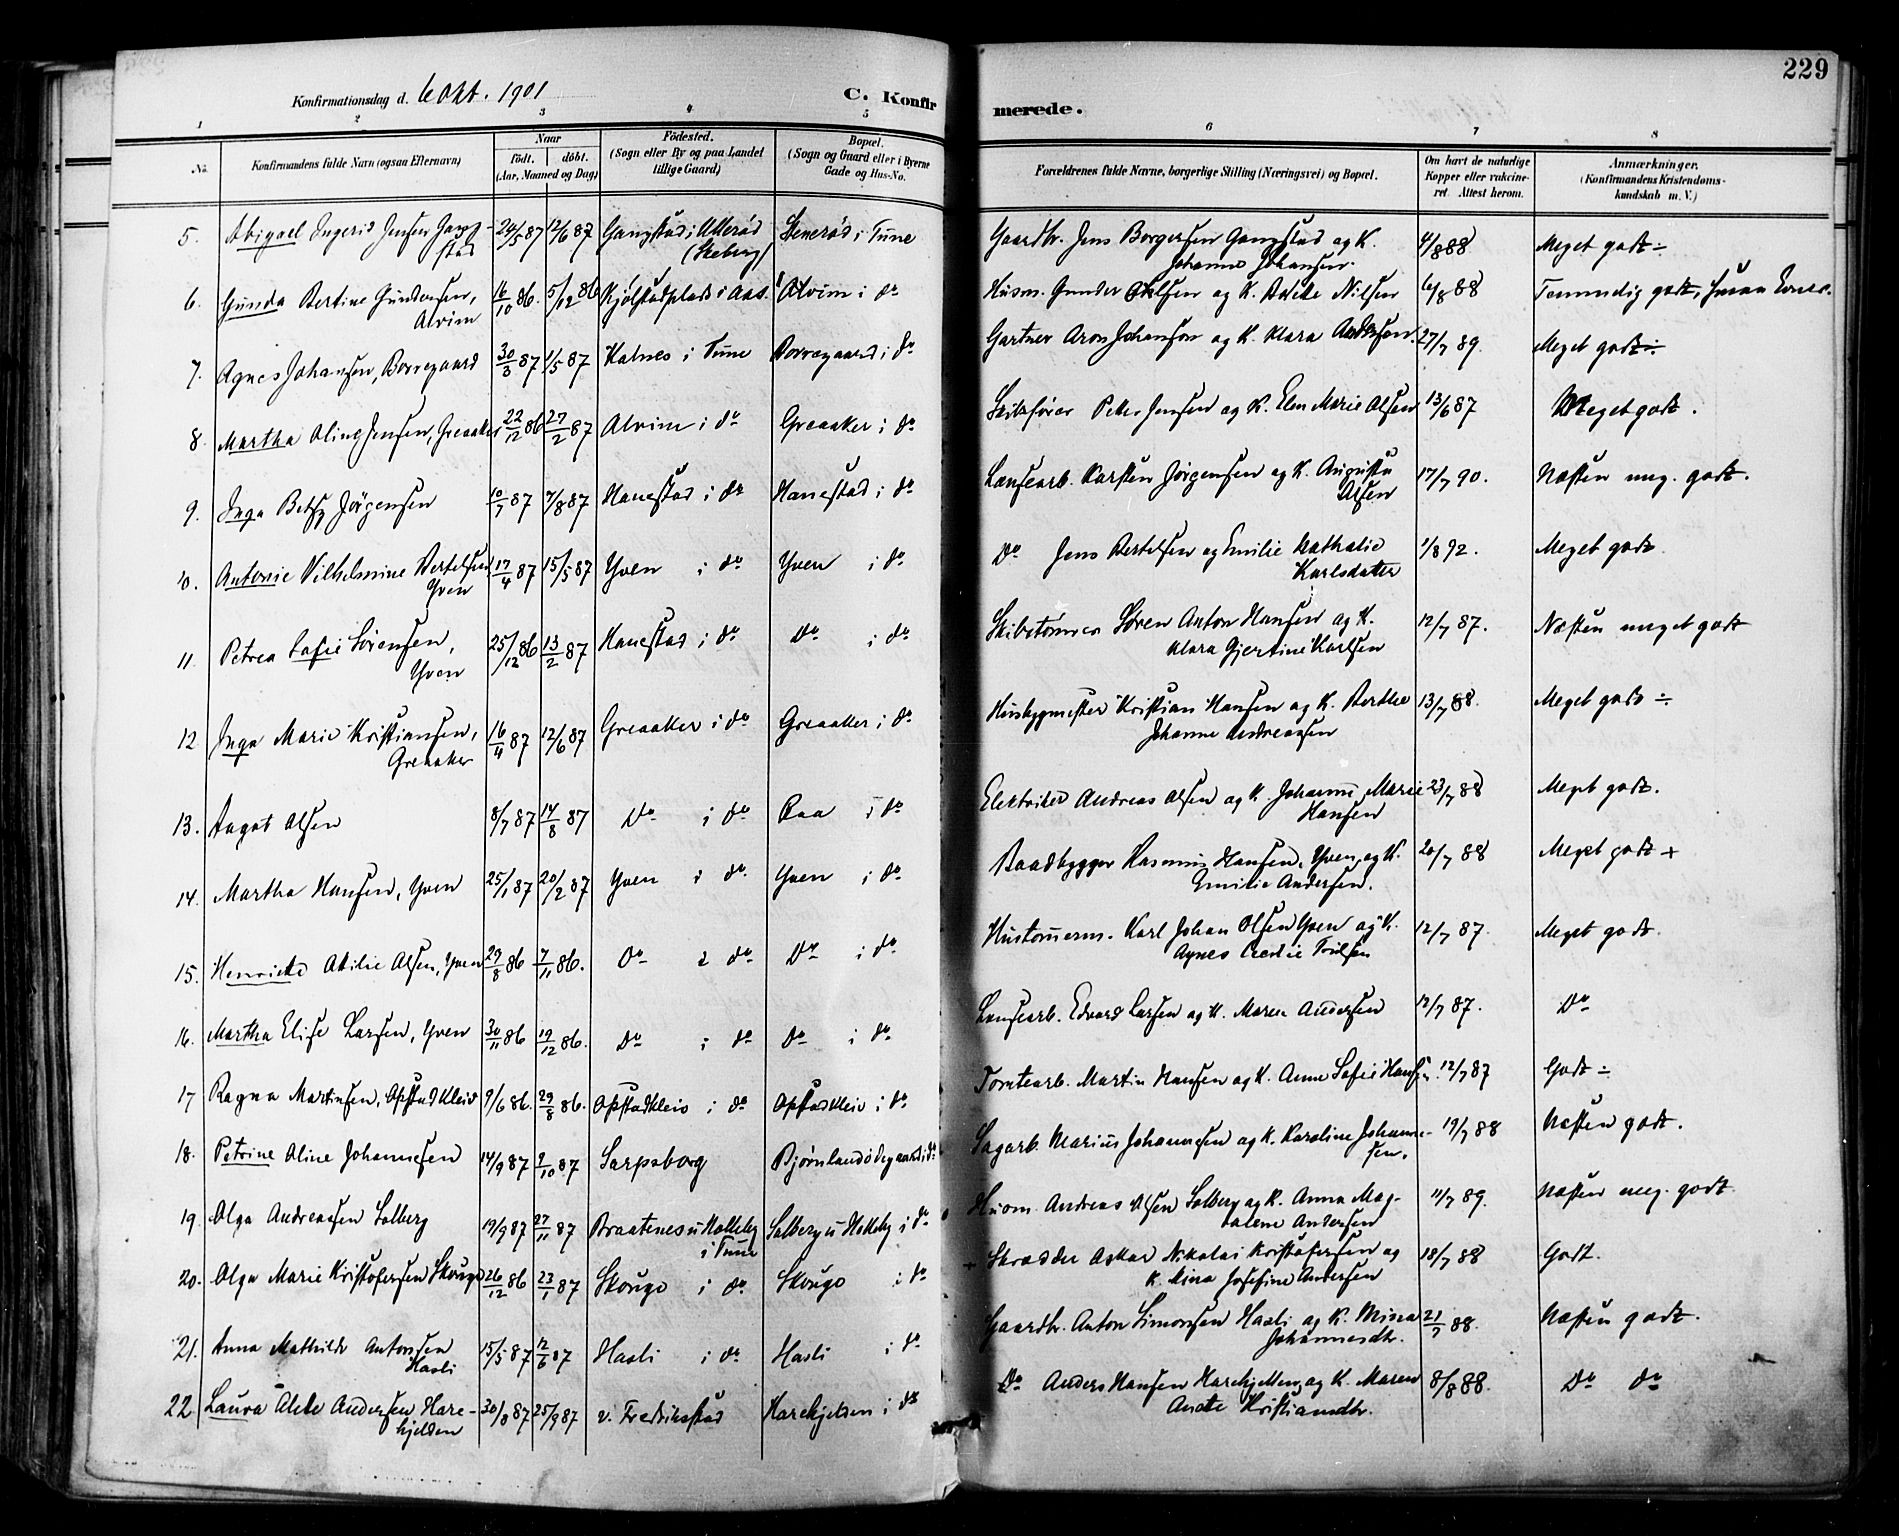 229
Konfirmationsdag d. 6 Okt. 1901
C. Konfirmerede.
1 2 3 4 5 6 7 8
No.
Konfirmandens fulde Navn (ogsaa Efternavn)
Naar
födt. döbt.
(Aar, Maaned og Dag)
Födested.
(Sogn eller By og paa Landet
tillige Gaard)
Bopæl.
(Sogn og Gaard eller i Byerne
Gade og Hus-No.
Forældrenes fulde Navne, borgerlige Stilling (Næringsvei) og Bopæl.
Om havt de naturlige
Kopper eller vakcine-
ret. Attest herom.
Anmærkninger.
(Konfirmandens Kristendoms-
kundskab m. V.)
5. Abigael Ingerid Jensen Gang- 24/5 87 12/6 87 Gangstad i Ullerød Stenerød i Tune Gaardbr. Jens Borgersen Gangstad og K. 4/8 88 Meget godt ÷
stad (Skeberg) Johanne Johansen.
6. Gunda Bertine Gundersen, 16/10 86. 5/12 86 Kjölstadplads i Aas. Alvim i do Husm. Gunder Olsen og K. Nilsen 6/8 88 godt,
Alvim
7. Agnes Johansen, Borregaard 30/3 87. 1/5 87 Kalnes i Tune Borregaard i do Gartner Aron Johansen og K. Klara Andersen. 27/7 89. Meget godt ÷
8. Martha Oline Jensen, Greaaker 22/12 86 27/2 87 Alvim i do Greaaker i do Skibsfører Peter Jensen og K. Elen Marie Olsen 13/6 87 Meget godt.
9. Inga Betsy Jörgensen 10/7 87 7/8 87 Hanestad i do Hanestad i do Lænsearb. Karsten Jørgensen og K. Augusta 17/7 90. Næsten meg. godt.
Olsen
10. Antonie Vilhelmine Bertelsen, 17/4 87 15/5 87 Yven i do Yven i do Do Jens Bertelsen og Emilie Nathalie 1/8 92. Meget godt
Yven Karlsdatter
11. Petrea Sofie Sörensen, 25/12 86 13/2 87 Hanestad i do Do i do Skibstömrer Sören Anton Hansen og K. 12/7 87. Næsten meget godt
Yven Klara Gjertine Karlsen
12. Inga Marie Kristiansen, 16/4 87 12/6 87 Greaaker i do Greaaker i do Husbygmester Kristian Hansen og K. Berthe 13/7 88. Meget godt ÷
Greaaker Johanne Andreassen
13. Aagot Olsen 8/7 87 14/8 87 Do i do Raa i do Elektriker Andreas Olsen og K. Johanne Marie 23/7 88 Meget godt.
Hansen
14. Martha Hansen, Yven 25/1 87 20/2 87 Yven i do Yven i do Baadbygger Rasmus Hansen, Yven, og K. 20/7 88 Meget godt +
Emilie Andersen.
15. Henriette Otilie Olsen, Yven 29/8 86 7/11 86. Do i do Do i do Hustömerm. Karl Johan Olsen Yven og K. 12/7 87. Meget godt.
Agnes
16. Martha Elise Larsen, Yven 30/11 86 19/12 86. Do i do Do i do Lænsearb. Edvard Larsen og K. Maren Andersen 12/7 87. Do
17 Ragna Martinsen, Opstadkleiv 9/6 86. 29/8 86. Opstadkleiv i do Opstadkleiv i do Tomtearb. Martin Hansen og K. Anne Sofie Hansen. 12/7 87 Godt ÷
18. Petrine Oline Johannesen 14/9 87 9/10 87 Sarpsborg Bjørnlandødegaard i do Sagarb. Marius Johannesen og K. Karoline Johanne- 19/7 88 Næsten godt.
sen.
19. Olga Andreassen Solberg 19/9 87 27/11 87 Braatenes u Holleby Solberg u Holleby i do Husm. Andreas Olsen Solberg og K. Anna Mag- 11/7 89. Næsten meg. godt
i Tune dalene Andersen
20. Olga Marie Kristofersen Skouge 26/12 86 23/1 87 Skouge i do Skouge i do + Skrædder Oskar Nikolai Kristofersen og 18/7 88 Godt.
K. Mina Josefine Andersen
21. Anna Mathilde Antonsen 15/5 87 12/6 87 Hasli i do Hasli i do Gaardbr. Anton Simonsen Hasli og K. Mina 21/7 88. Næsten godt.
Hasli Johannesdtr.
22 Laura Alette Andersen Hare- 30/8 87 25/9 87 v. Fredrikstad Harekjelsen i do Do Anders Hansen Harekjelden og K. Maren 8/8 88. Do do
hjelden Anette Kristiansdtr.